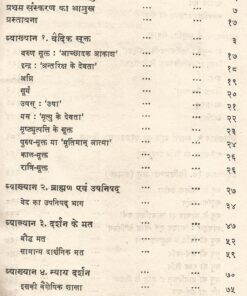 प्रथम संस्करण का आमुख ... ... ७
प्रस्तावना ... ... १
व्याख्यान १. वैदिक सूक्त ... ... ३
वरुण सूक्त : 'आच्छादक आकाश' ... ...
इन्द्र : 'अन्तरिक्ष के देवता' ... ...
अग्नि ... ...
सूर्य ... ...
उषस् : 'उषा' ... ... १७
यम : 'मृत्यु के देवता' ... ...
सृष्ट्युत्पत्ति के सूक्त ... ...
पुरुष-सूक्त या 'मूर्तिमान् आत्मा' ... ...
काल-सूक्त ... ...
रात्रि-सूक्त ... ...
व्याख्यान २. ब्राह्मण एवं उपनिषद् ... ... २७
वेद का उपनिषद् भाग ... ... ३४
व्याख्यान ३. दर्शन के मत ... ... ४७
बौद्ध मत ... ... ५२
सामान्य दार्शनिक मत ... ... ५९
व्याख्यान ४. न्याय दर्शन ... ... ७०
इसकी वैशेषिक शाखा ... ...